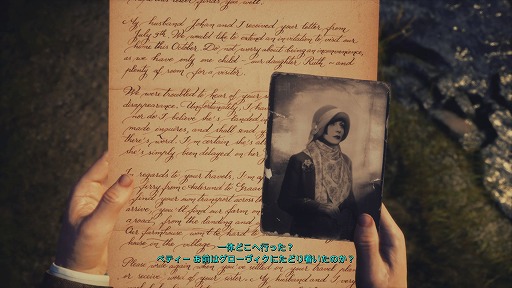 finds you well.
My husband Johan and I received your letter from
July 9th. We would like to extend an invitation to visit our
home this October. Do not worry about being an inconvenience,
as we have only one child - our daughter, Ruth, - and
plenty of room for a visitor.
We were troubled to hear of your
disappearance. Unfortunately, I
nor do I believe she's landed
made enquires, and shall and
there's word. I'm certain she's
she's simply been delayed on her
In regards to your travels, I'm
ferry from Aalesund to
find your own transport across
arrive, you'll find our farm
a road, from the landing and
Our farmhouse won't be hard
house in the village.
Please write again when you've settled on your travel
or receive word of your sister. My husband and I very
一体どこへ行った？
ベティー お前はグローヴィクにたどり着いたのか？